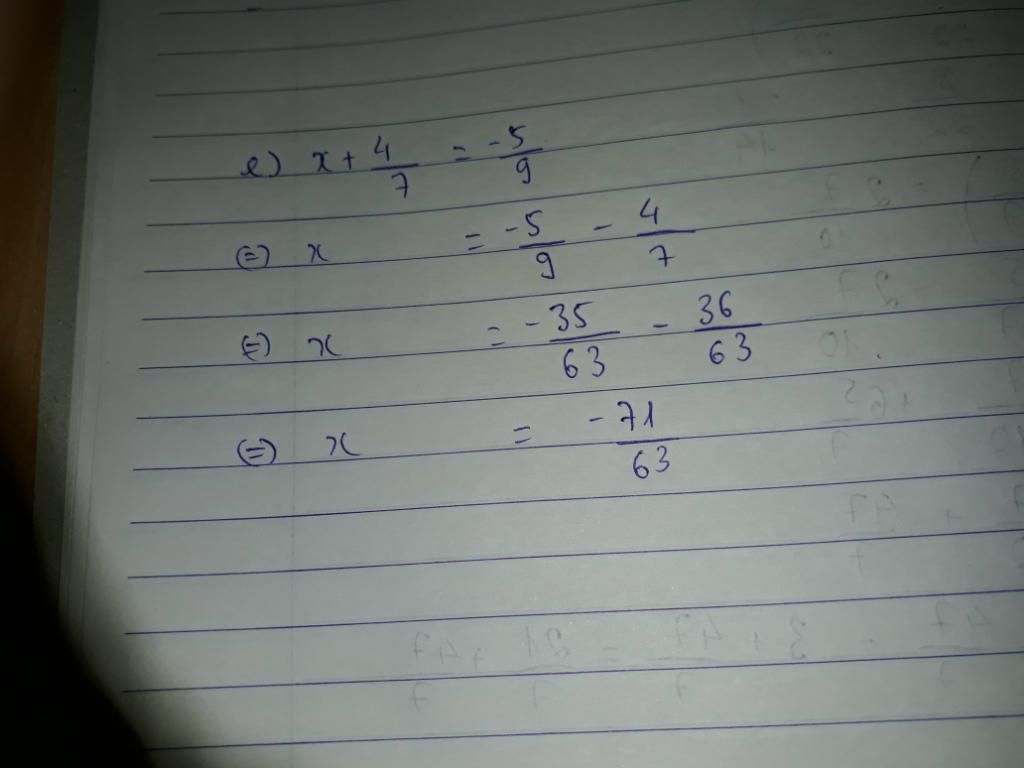 e) x + 4/7 = -5/9
(=) x = -5/9 - 4/7
(=) x = -35/63 - 36/63
(=) x = -71/63